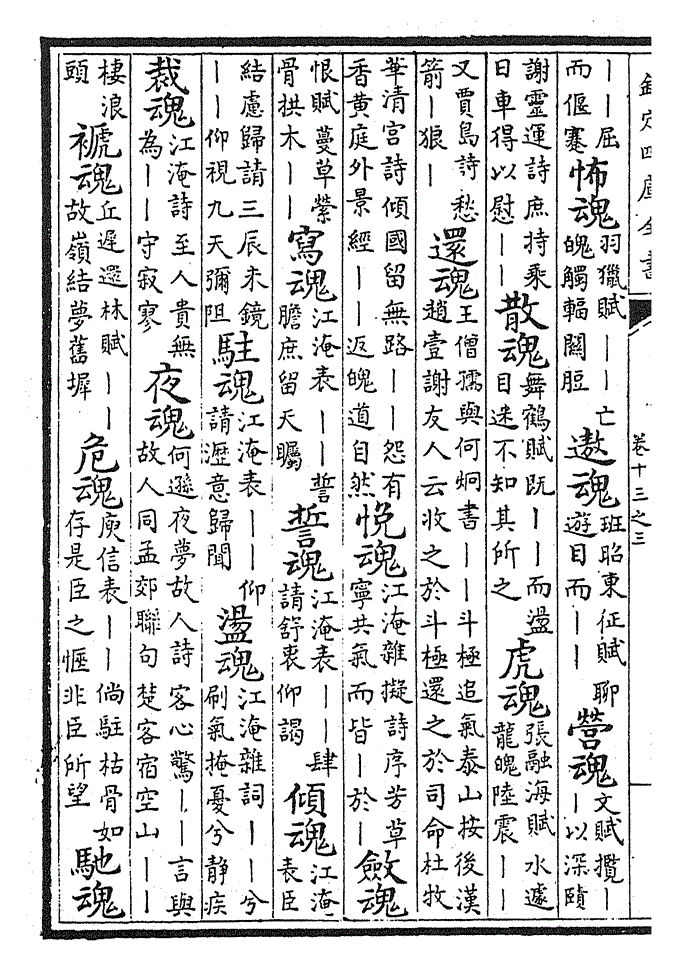 欽定四庫全書 卷十三之三
——屈而偃蹇怖魂羽獵賦——亡魄觸輻關脰遨魂班昭東征賦聊遊目而——營魂文賦攬——以深賾
謝靈運詩庶持乘日車得以慰——散魂舞鶴賦既——而盪目迷不知其所之虎魂張融海賦水遽龍魄陸震——
又賈島詩愁箭—狼—還魂王僧孺與何炯書——斗極追氣泰山按後漢趙壹謝友人云收之於斗極還之於司命杜牧
華清宮詩傾國留無路——怨有香黄庭外景經——返魄道自然悅魂江淹雜擬詩序芳草寧共氣而皆—於—斂魂
恨賦蔓草縈骨拱木——寫魂江淹表——誓膽庶留天矚誓魂江淹表——肆請舒衷仰謁傾魂江淹表臣
結慮歸請三辰未鏡——仰視九天彌阻駐魂江淹表——仰請瀝意歸聞盪魂江淹雜詞——兮刷氣掩憂兮靜疾
裁魂江淹詩至人貴無為——守寂寥夜魂何遜夜夢故人詩客心驚——言與故人同孟郊聯句楚客宿空山——
棲浪頭褫魂丘遲還林賦——故嶺結夢舊墀危魂庾信表——倘駐枯骨如存是臣之愜非臣所望馳魂